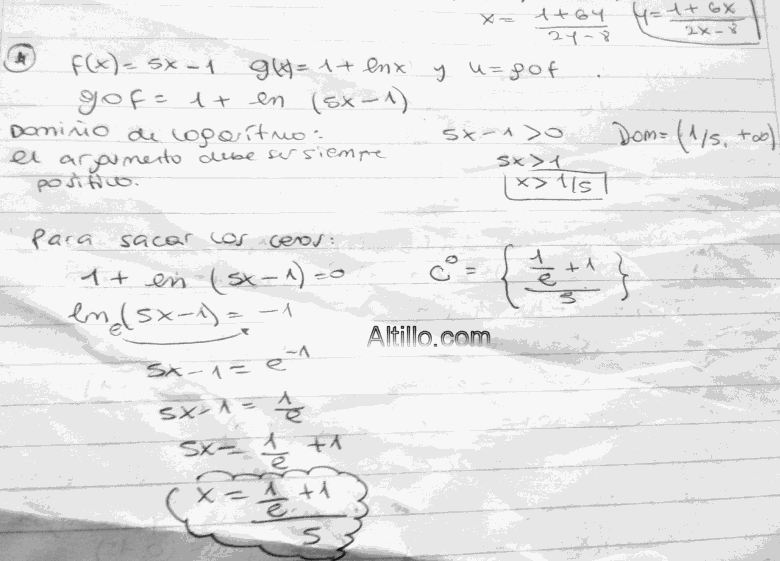 x = (1+6y)/(2y-8) y = (1+6x)/(2x-8)
4 f(x) = 5x-1 g(x) = 1+lnx y u = gof .
gof = 1 + ln (5x-1)
Dominio de logaritmo: 5x-1>0 Dom = (1/5, +∞)
el argumento debe ser siempre 5x>1
positivo. x > 1/5
Para sacar los ceros:
1 + ln (5x-1) = 0 C⁰ = { (1/e + 1)/5 }
lnₑ(5x-1) = -1
Altillo.com
5x-1 = e⁻¹
5x-1 = 1/e
5x = 1/e + 1
x = (1/e + 1)/5